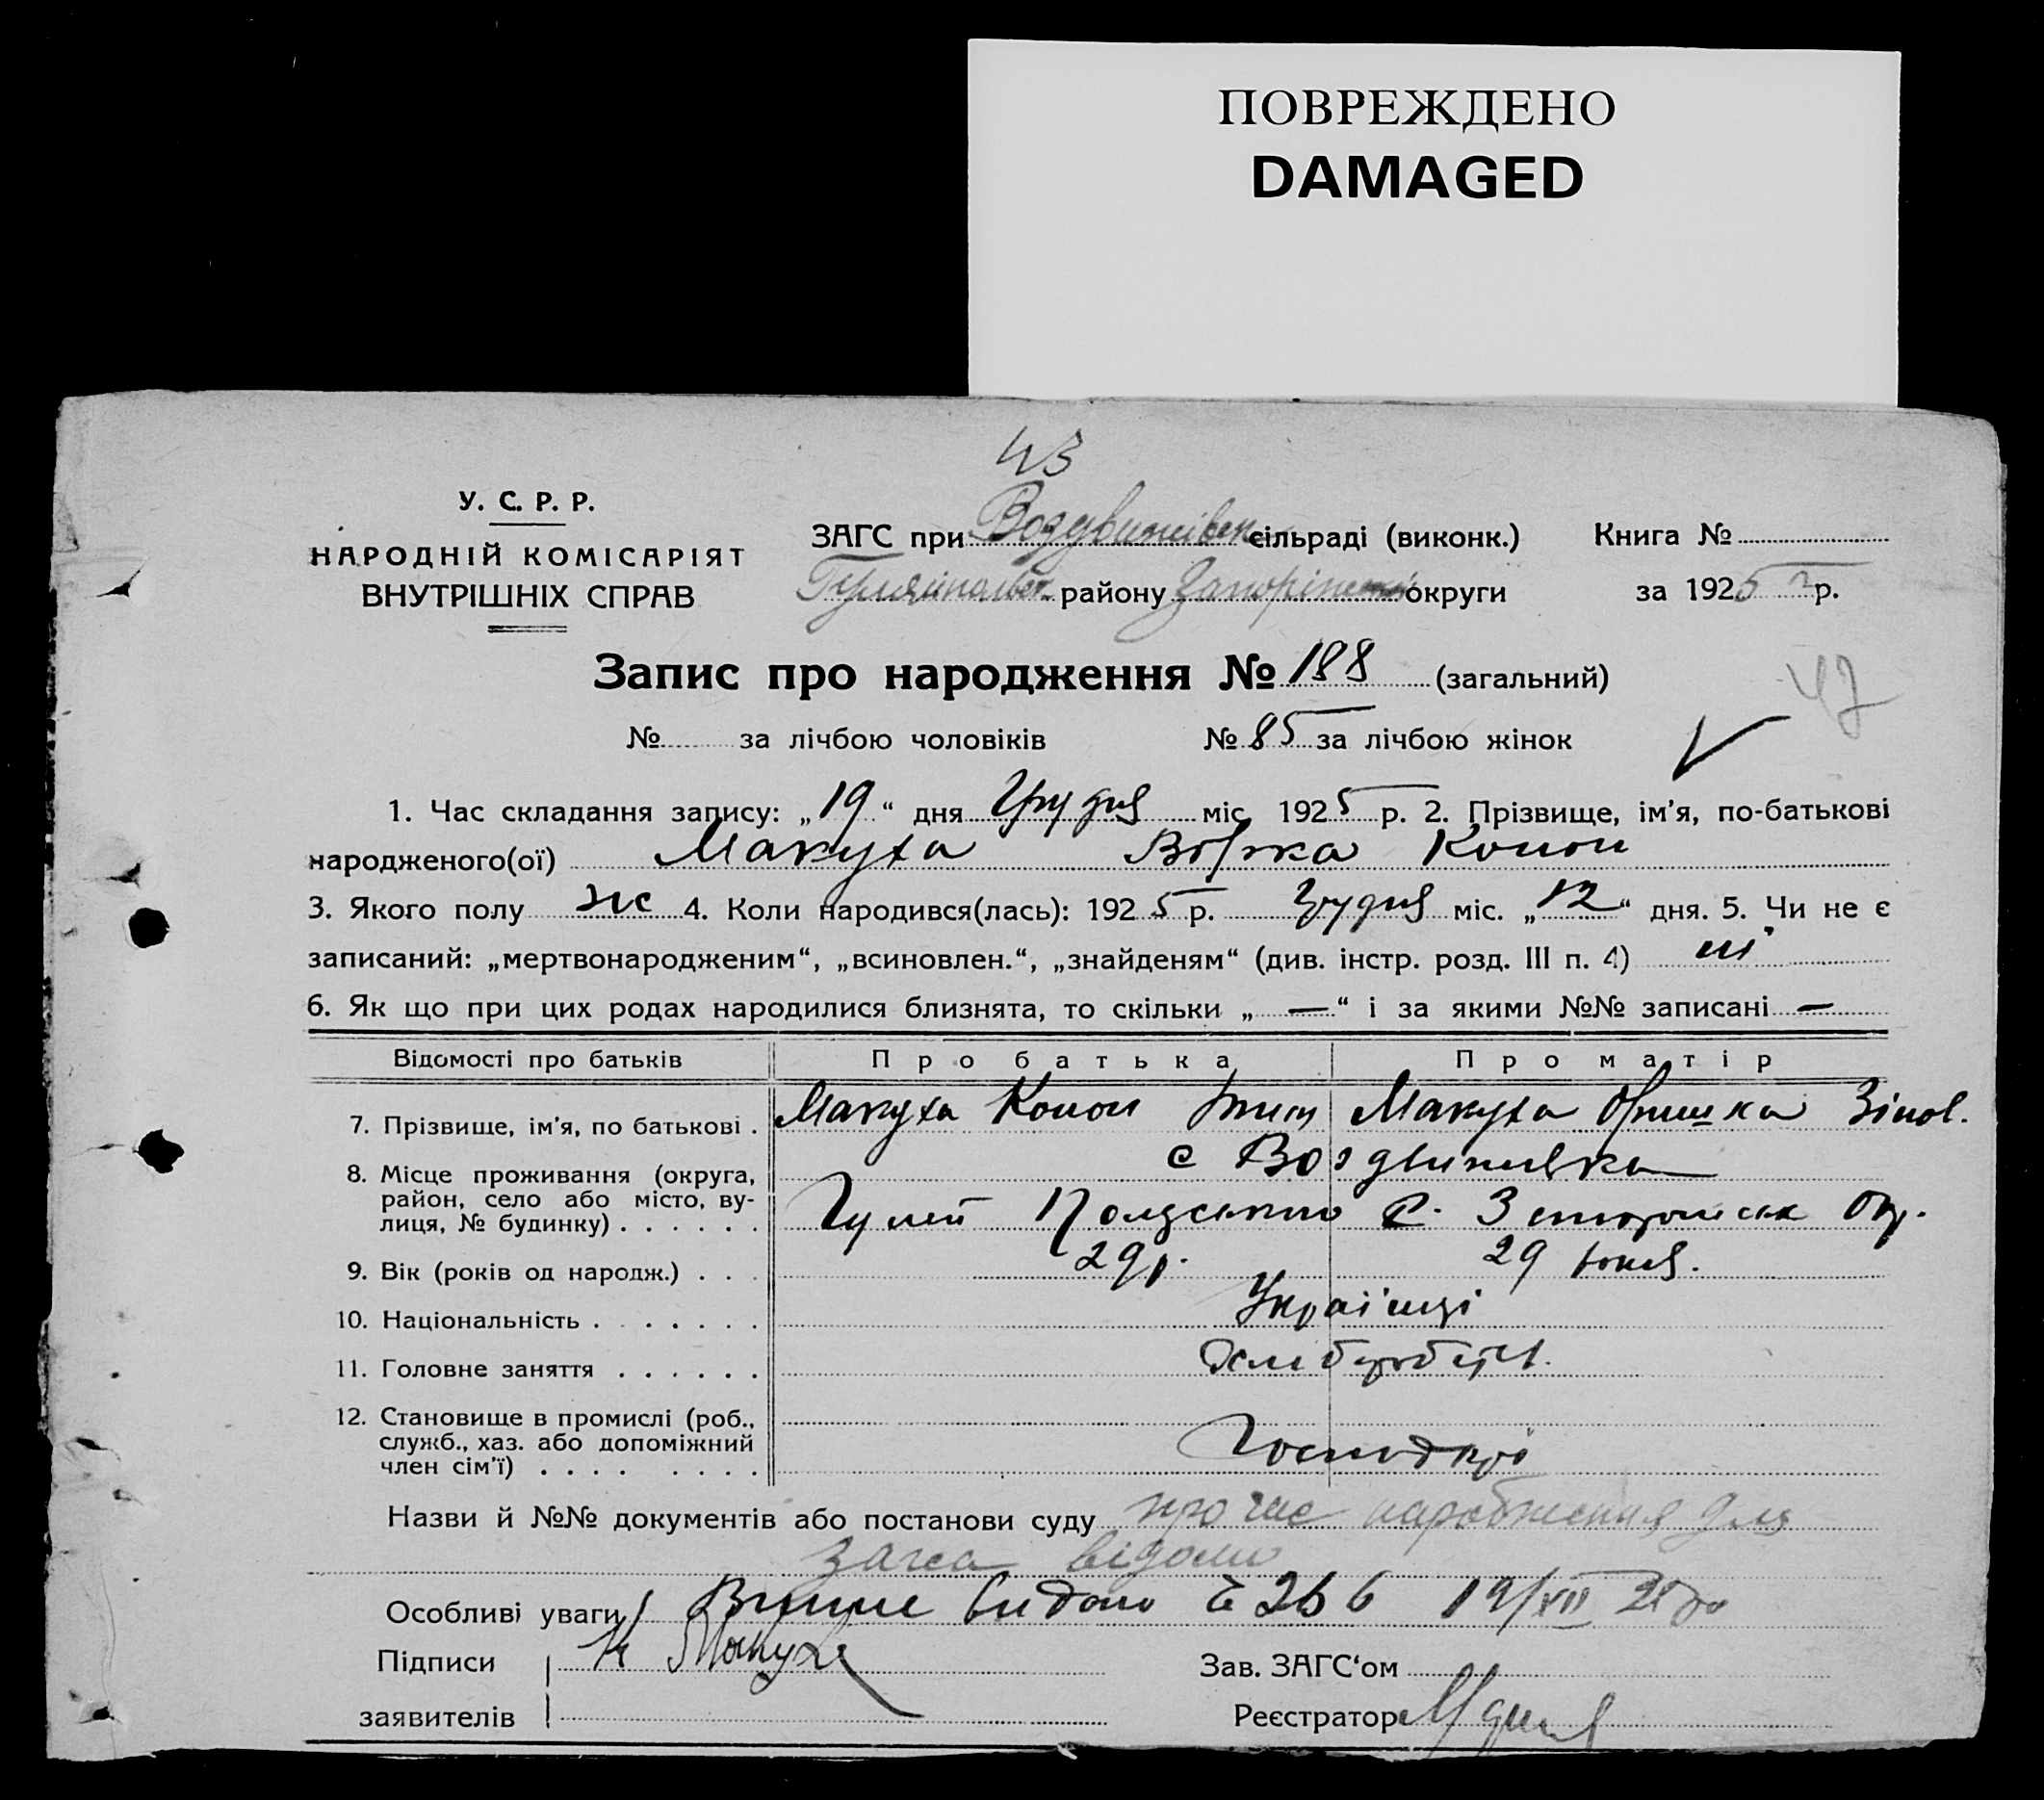 ПОВРЕЖДЕНО
DAMAGED
43
У. С. Р. Р.
НАРОДНІЙ КОМІСАРІЯТ
ВНУТРІШНІХ СПРАВ
ЗАГС при Воздвижівск сільраді (виконк.)
Гуляйпольск району Запоріжської округи
Книга №
за 1925 р.
Запис про народження № 188 (загальний)
47
№ за лічбою чоловіків № 85 за лічбою жінок
1. Час складання запису: „19“ дня Грудня міс. 1925 р. 2. Прізвище, ім'я, по-батькові
народженого(ої) Макуха Вірка Конон
3. Якого полу ж 4. Коли народився(лась): 1925 р. Грудня міс. „12“ дня. 5. Чи не є
записаний: „мертвонародженим“, „всиновлен.“, „знайденям“ (див. інстр. розд. III п. 4) ні
6. Як що при цих родах народилися близнята, то скільки „—“ і за якими №№ записані —
Відомості про батьків Про батька Про матір
7. Прізвище, ім'я, по батькові . Макуха Конон Макуха Оришка Зінов.
8. Місце проживання (округа,
район, село або місто, ву-
лиця, № будинку) . . . . . .
с Воздвижівка
Гуляй Польського р. Запоріжськ окр.
9. Вік (років од народж.) . . . 29 р. 29 років.
10. Національність . . . . . . . Українці
11. Головне заняття . . . . . . Хліборобств.
12. Становище в промислі (роб.,
служб., хаз. або допоміжний
член сім'ї) . . . . . . . .
Господарі
Назви й №№ документів або постанови суду про час народження для
загса відомо
Особливі уваги Видано № 266 19/XII 25 р
Підписи К Макуха Зав. ЗАГС‘ом
заявителів Реєстратор